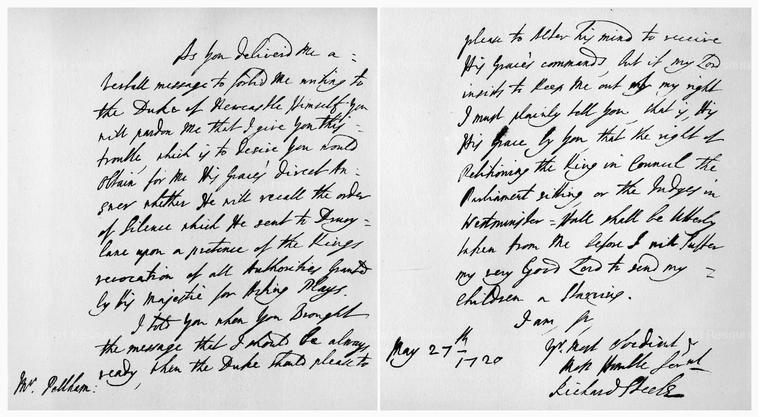 As you deliver'd Me a =
verball message to forbid Me writing to
the Duke of Newcastle Himself You
will pardon Me that I give You this =
trouble which is to desire You would
Obtain for Me His Grace's direct An =
swer whether He will recall the order
of Silence which He sent to Drury =
lane upon a pretence of the Kings
revocation of all Authorities Granted
by his Majestie for Acting Plays.
I told You when You Brought
the message that I should be always
ready, when the Duke should please to
Mr. Pellham:
please to Alter his mind to receive
His Grace's commands, but if my Lord
insists to keep Me out of my right
I must plainly tell You, that is, His
His Grace by You that the right of
Petitioning the King in Council the
Parliament sitting or the Judges in
Westminster = Hall shall be utterly
taken from Me before I will suffer
my very Good Lord to send my =
children a Starving.
I am, Sr
May 27th 1720
Yr. Most Obedient &
Most Humble Servnt
Richard Steele